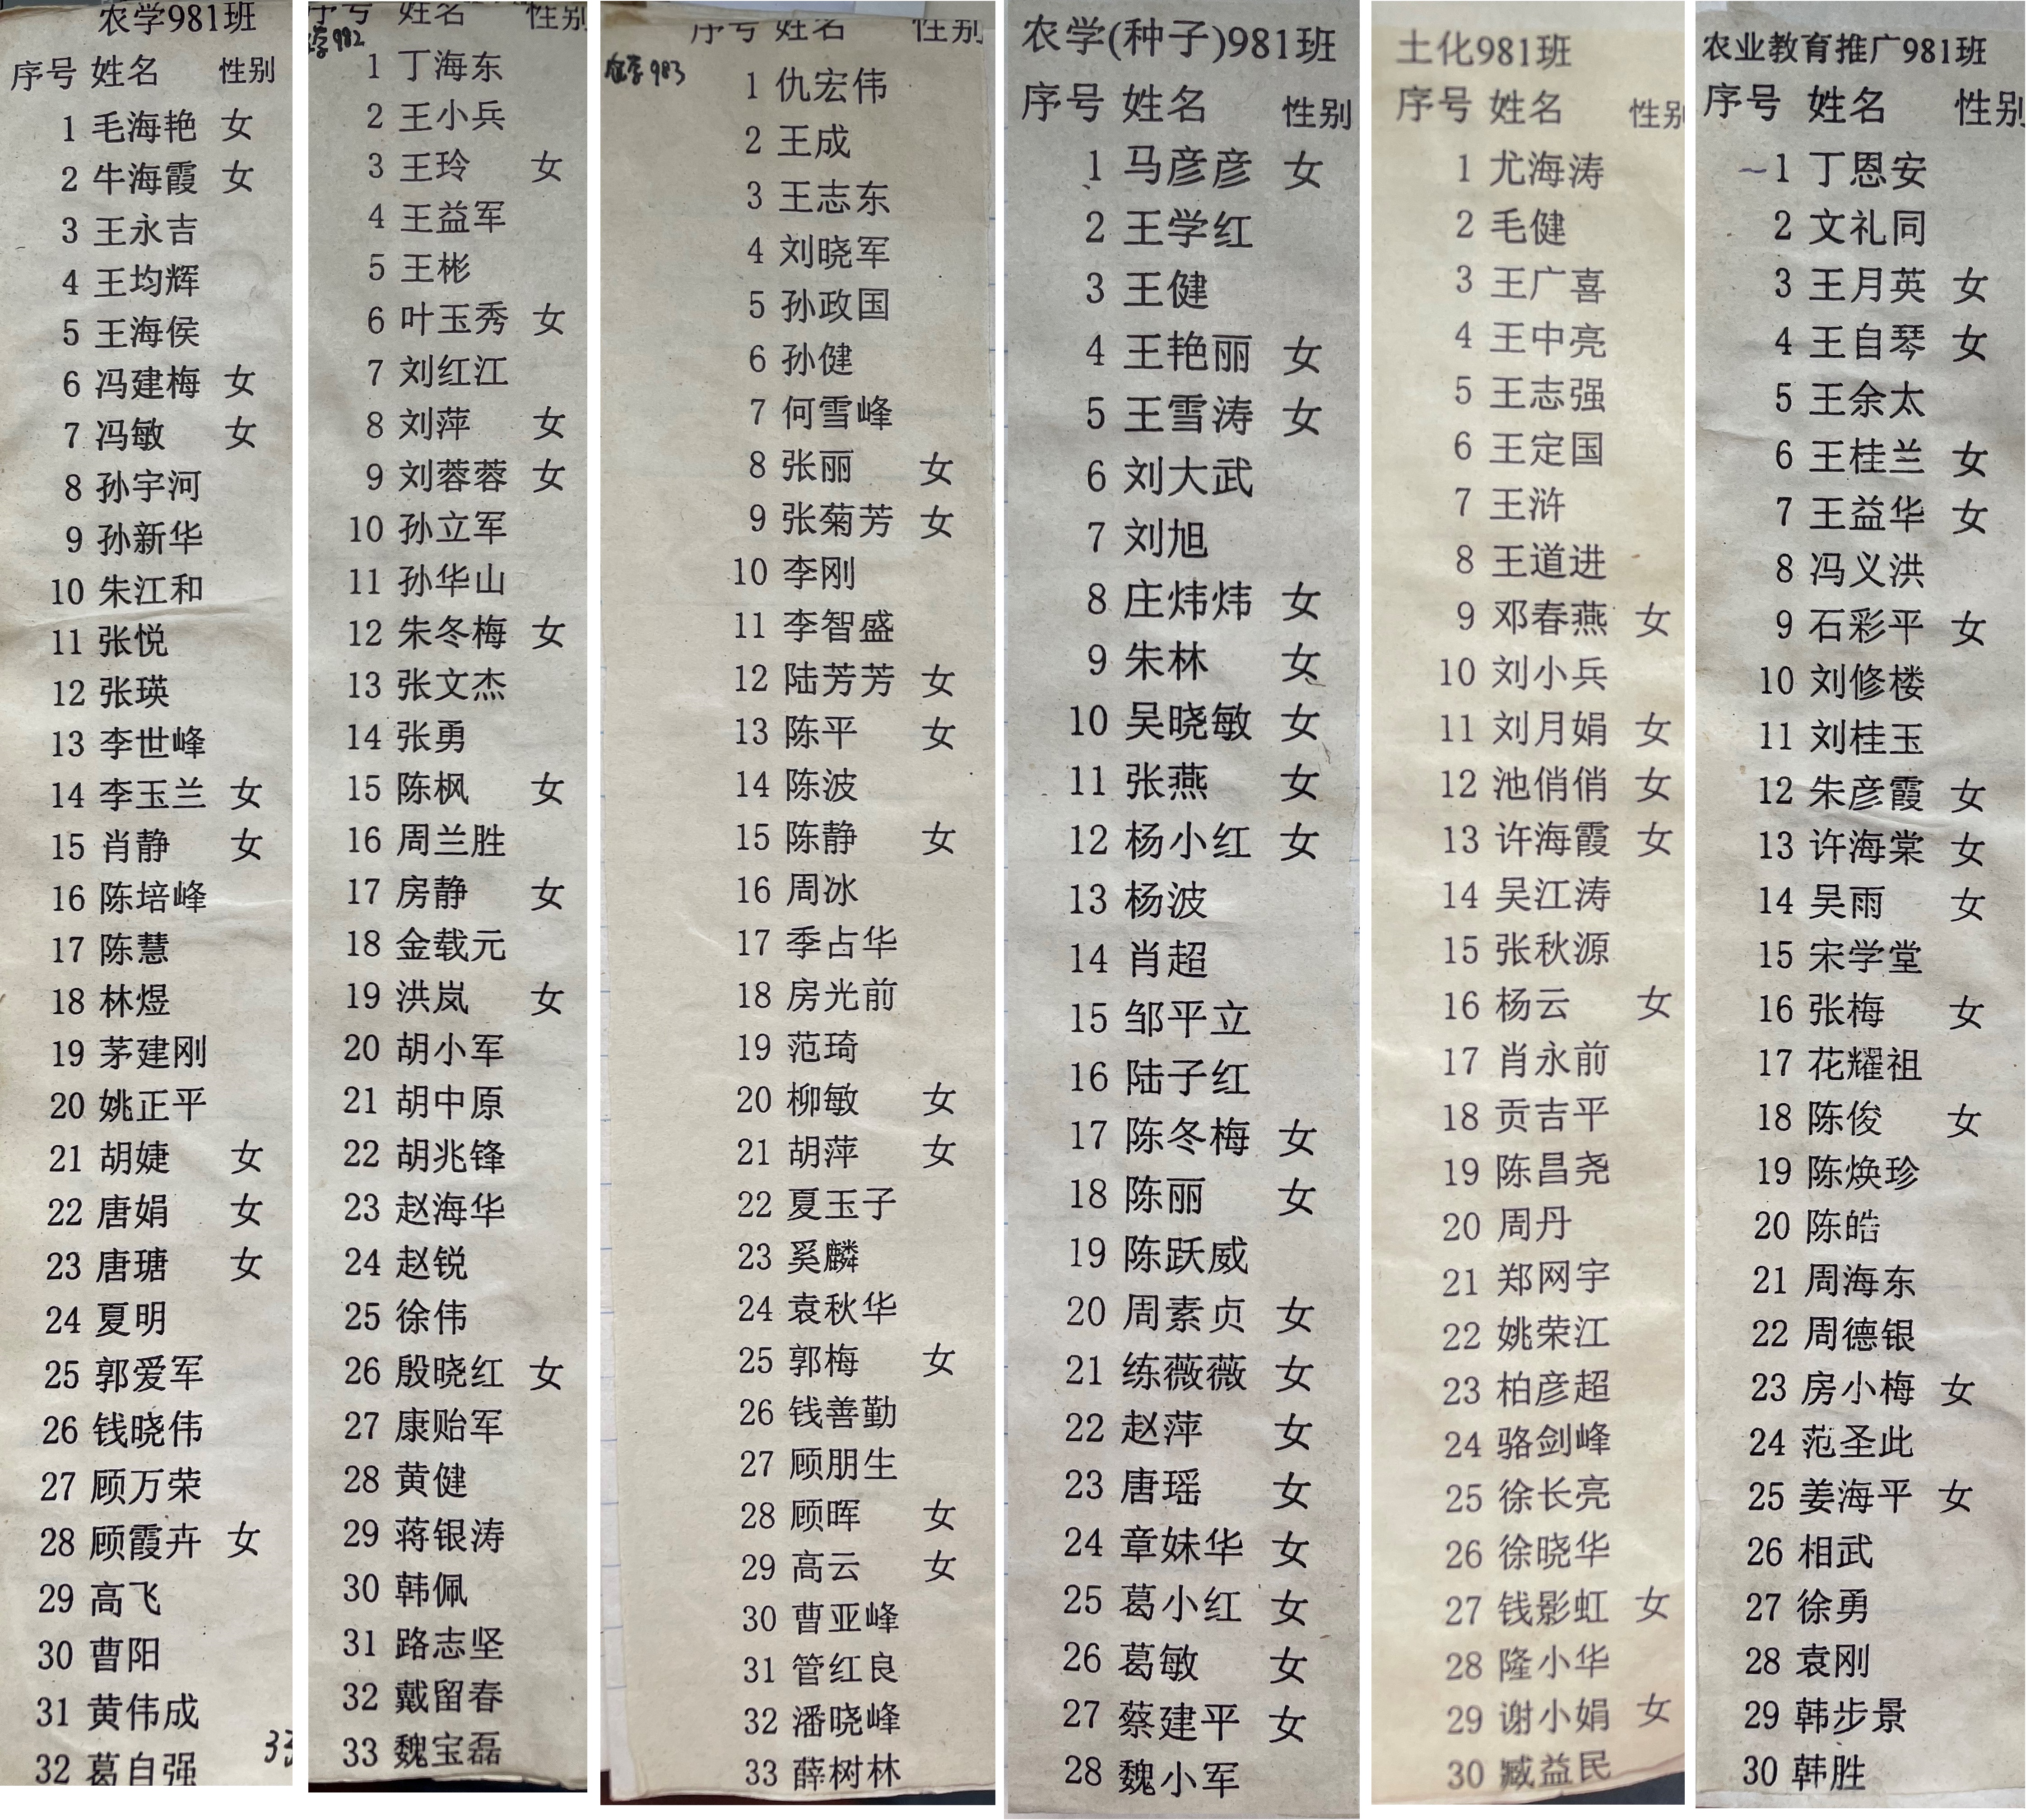 农学981班
序号 姓名 性别
1 毛海艳 女
2 牛海霞 女
3 王永吉
4 王均辉
5 王海侯
6 冯建梅 女
7 冯敏 女
8 孙宇河
9 孙新华
10 朱江和
11 张悦
12 张瑛
13 李世峰
14 李玉兰 女
15 肖静 女
16 陈培峰
17 陈慧
18 林煜
19 茅建刚
20 姚正平
21 胡婕 女
22 唐娟 女
23 唐瑭 女
24 夏明
25 郭爱军
26 钱晓伟
27 顾万荣
28 顾霞卉 女
29 高飞
30 曹阳
31 黄伟成
32 葛自强
33
序号 姓名 性别
农学982
1 丁海东
2 王小兵
3 王玲 女
4 王益军
5 王彬
6 叶玉秀 女
7 刘红江
8 刘萍 女
9 刘蓉蓉 女
10 孙立军
11 孙华山
12 朱冬梅 女
13 张文杰
14 张勇
15 陈枫 女
16 周兰胜
17 房静 女
18 金载元
19 洪岚 女
20 胡小军
21 胡中原
22 胡兆锋
23 赵海华
24 赵锐
25 徐伟
26 殷晓红 女
27 康贻军
28 黄健
29 蒋银涛
30 韩佩
31 路志坚
32 戴留春
33 魏宝磊
序号 姓名 性别
农学983
1 仇宏伟
2 王成
3 王志东
4 刘晓军
5 孙政国
6 孙健
7 何雪峰
8 张丽 女
9 张菊芳 女
10 李刚
11 李智盛
12 陆芳芳 女
13 陈平 女
14 陈波
15 陈静 女
16 周冰
17 季占华
18 房光前
19 范琦
20 柳敏 女
21 胡萍 女
22 夏玉子
23 奚麟
24 袁秋华
25 郭梅 女
26 钱善勤
27 顾朋生
28 顾晖 女
29 高云 女
30 曹亚峰
31 管红良
32 潘晓峰
33 薛树林
农学(种子)981班
序号 姓名 性别
1 马彦彦 女
2 王学红
3 王健
4 王艳丽 女
5 王雪涛 女
6 刘大武
7 刘旭
8 庄炜炜 女
9 朱林 女
10 吴晓敏 女
11 张燕 女
12 杨小红 女
13 杨波
14 肖超
15 邹平立
16 陆子红
17 陈冬梅 女
18 陈丽 女
19 陈跃威
20 周素贞 女
21 练薇薇 女
22 赵萍 女
23 唐瑶 女
24 章妹华 女
25 葛小红 女
26 葛敏 女
27 蔡建平 女
28 魏小军
土化981班
序号 姓名 性别
1 尤海涛
2 毛健
3 王广喜
4 王中亮
5 王志强
6 王定国
7 王浒
8 王道进
9 邓春燕 女
10 刘小兵
11 刘月娟 女
12 池俏俏 女
13 许海霞 女
14 吴江涛
15 张秋源
16 杨云 女
17 肖永前
18 贡吉平
19 陈昌尧
20 周丹
21 郑网宇
22 姚荣江
23 柏彦超
24 骆剑峰
25 徐长亮
26 徐晓华
27 钱影虹 女
28 隆小华
29 谢小娟 女
30 臧益民
农业教育推广981班
序号 姓名 性别
1 丁恩安
2 文礼同
3 王月英 女
4 王自琴 女
5 王余太
6 王桂兰 女
7 王益华 女
8 冯义洪
9 石彩平 女
10 刘修楼
11 刘桂玉
12 朱彦霞 女
13 许海棠 女
14 吴雨 女
15 宋学堂
16 张梅 女
17 花耀祖
18 陈俊 女
19 陈焕珍
20 陈皓
21 周海东
22 周德银
23 房小梅 女
24 范圣此
25 姜海平 女
26 相武
27 徐勇
28 袁刚
29 韩步景
30 韩胜